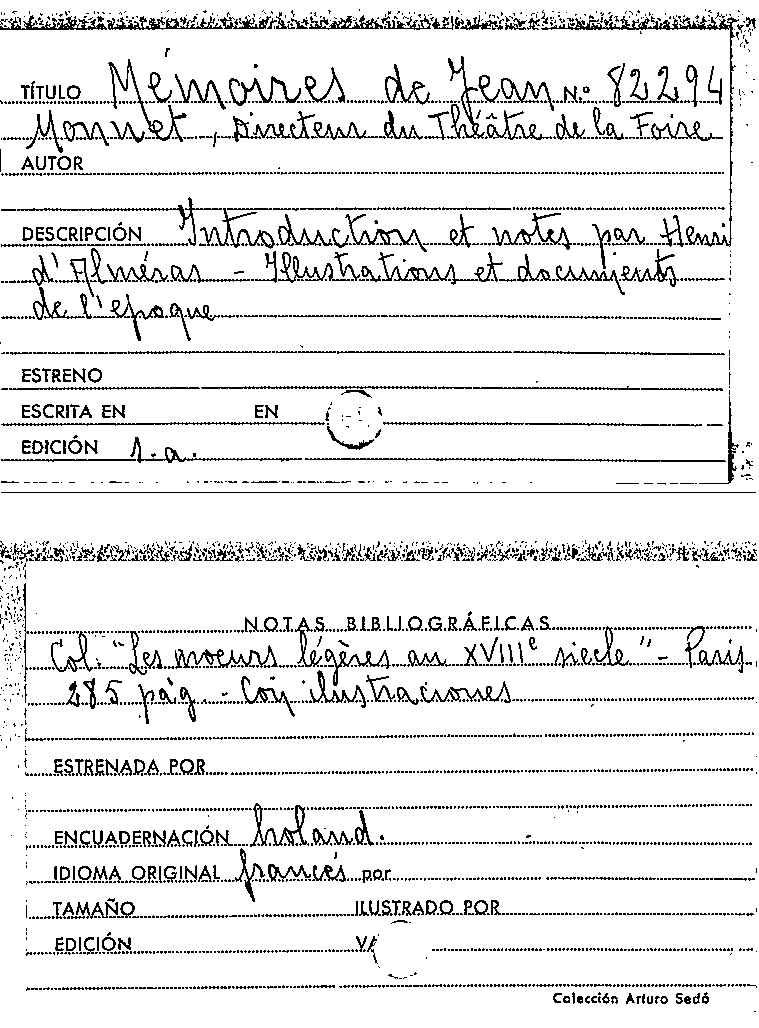 TÍTULO Mémoires de Jean N.º 82294
Monnet, Directeur du Théâtre de la Foire
AUTOR
DESCRIPCIÓN Introduction et notes par Henri
d'Alméras - Illustrations et documents
de l'epoque
ESTRENO
ESCRITA EN EN
EDICIÓN s.a.
NOTAS BIBLIOGRÁFICAS
Col. "Les moeurs légères au XVIIIe siecle" - Paris
285 pág. - Con ilustraciones
ESTRENADA POR
ENCUADERNACIÓN holand.
IDIOMA ORIGINAL francés por
TAMAÑO ILUSTRADO POR
EDICIÓN
Colección Arturo Sedó